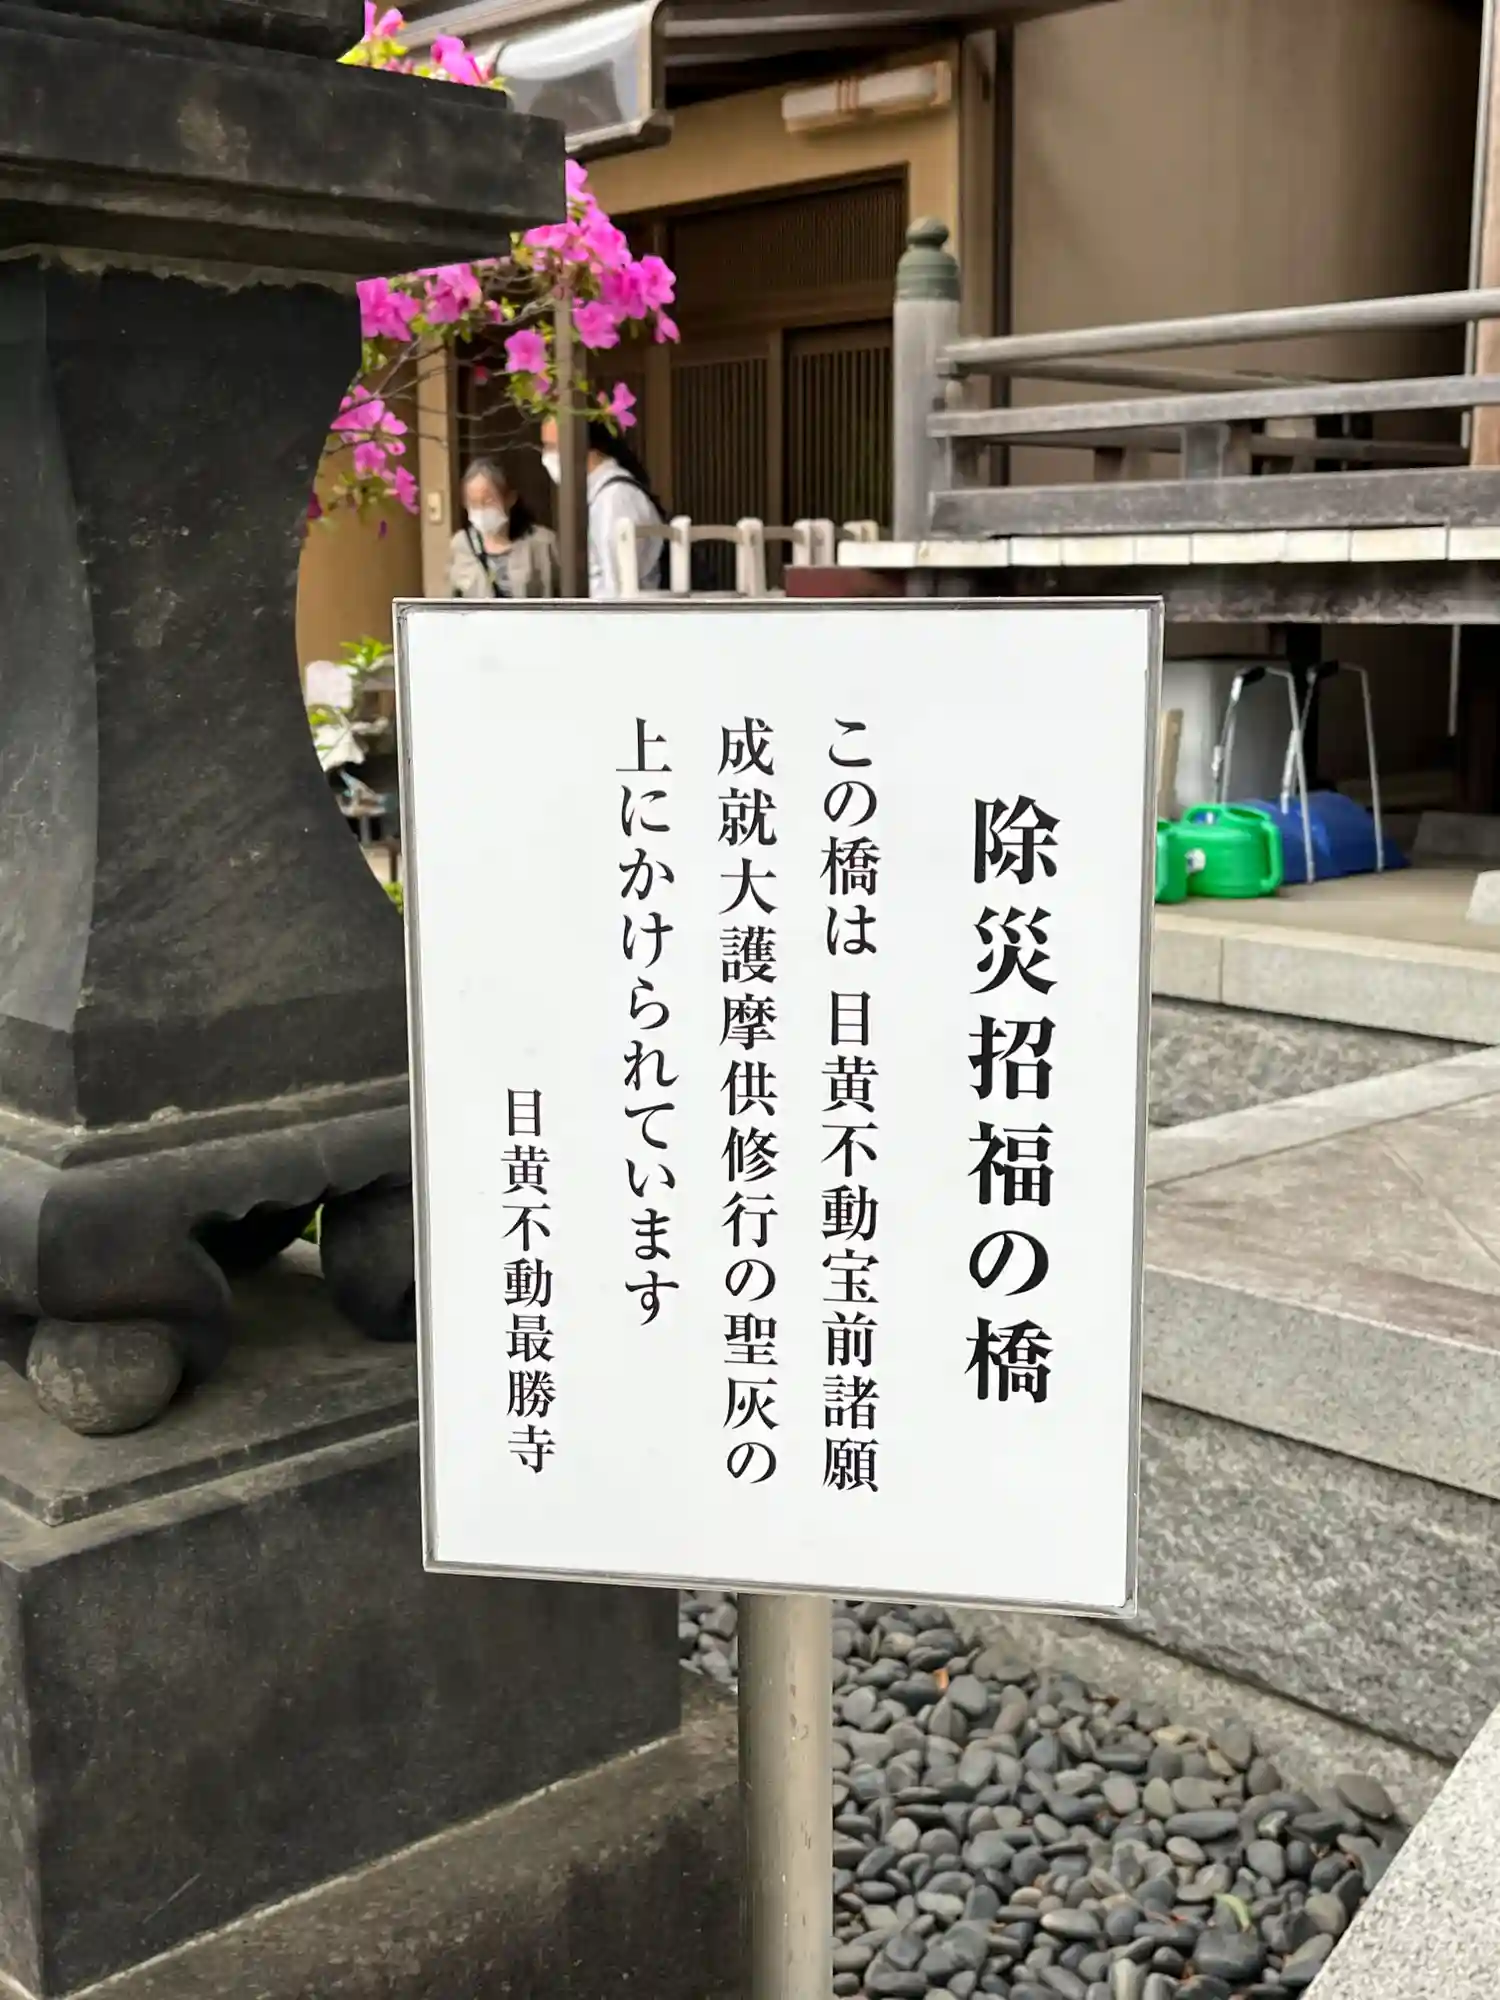 除災招福の橋
この橋は 目黄不動宝前諸願
成就大護摩供修行の聖灰の
上にかけられています
目黄不動最勝寺